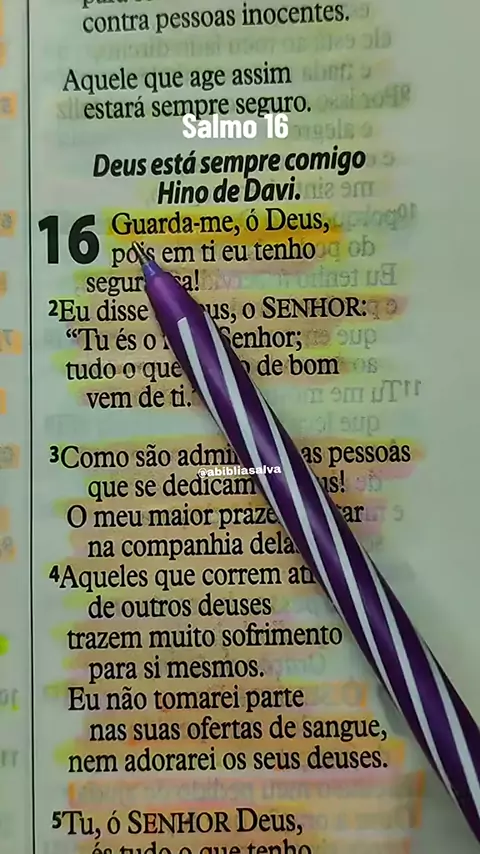 contra pessoas inocentes.
Aquele que age assim
estará sempre seguro.
Salmo 16
Deus está sempre comigo
Hino de Davi.
16 Guarda-me, ó Deus,
pois em ti eu tenho
segur a!
2Eu disse us, o SENHOR:
“Tu és o Senhor;
tudo o que de bom
vem de ti.
3Como são admi as pessoas
@abibliasalva
que se dedicam us!
O meu maior praze ar
na companhia dela
4Aqueles que correm at
de outros deuses
trazem muito sofrimento
para si mesmos.
Eu não tomarei parte
nas suas ofertas de sangue,
nem adorarei os seus deuses.
5Tu, ó SENHOR Deus,
és tudo o que tenho